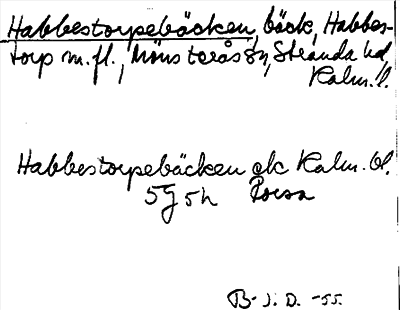 Habbestorpebäcken, bäck, Habbes-
torp m.fl., Mönsterås sn, Stranda hd,
Kalm. l.
Habbestorpebäcken ek Kalm. bl.
5G 5h
B- J. D. -55.